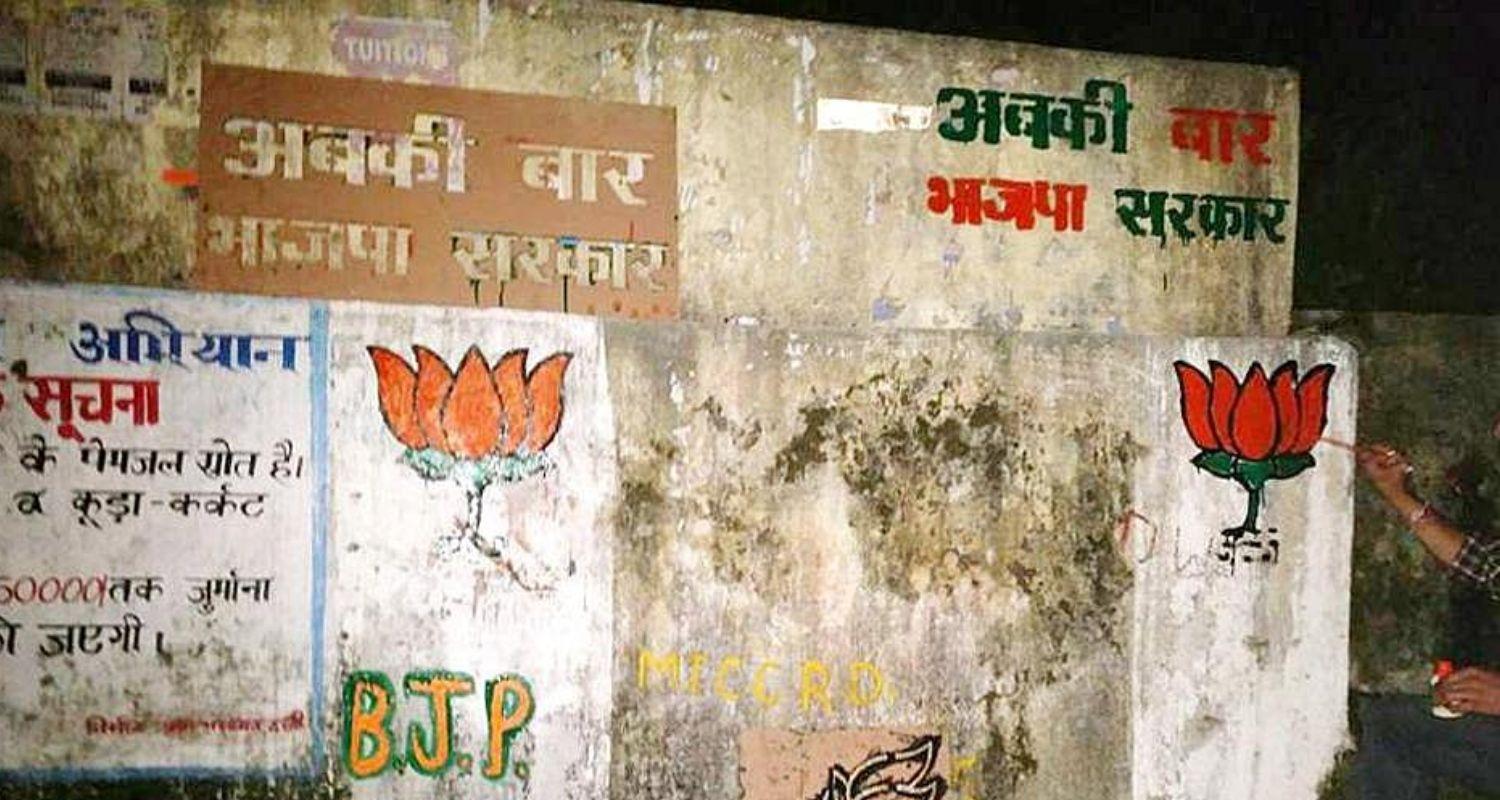 TUITION
अबकी बार
भाजपा सरकार
अबकी बार
भाजपा सरकार
अभियान
सूचना
के पेयजल स्रोत है।
व कूड़ा-कर्कट
50000/तक जुर्माना
जएगी।
B.J.P.
MICCRD.